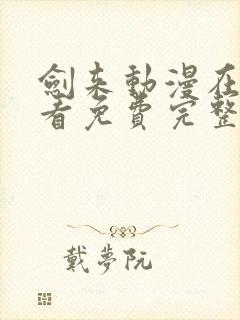 劍来動漫在
看免費完整
戴夢阮